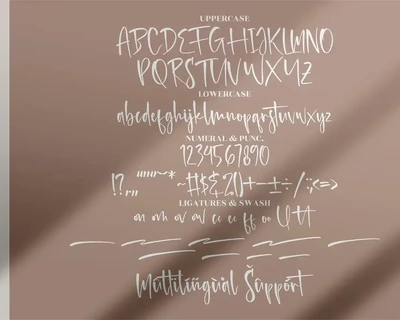 UPPERCASE
ABCDEFGHIJKLMNO
PQRSTUVWXYZ
LOWERCASE
abcdefghijklmnopqrstuvwxyz
NUMERAL & PUNC.
1234567890
LIGATURES & SWASH
Mültilïngùàl Šüppört